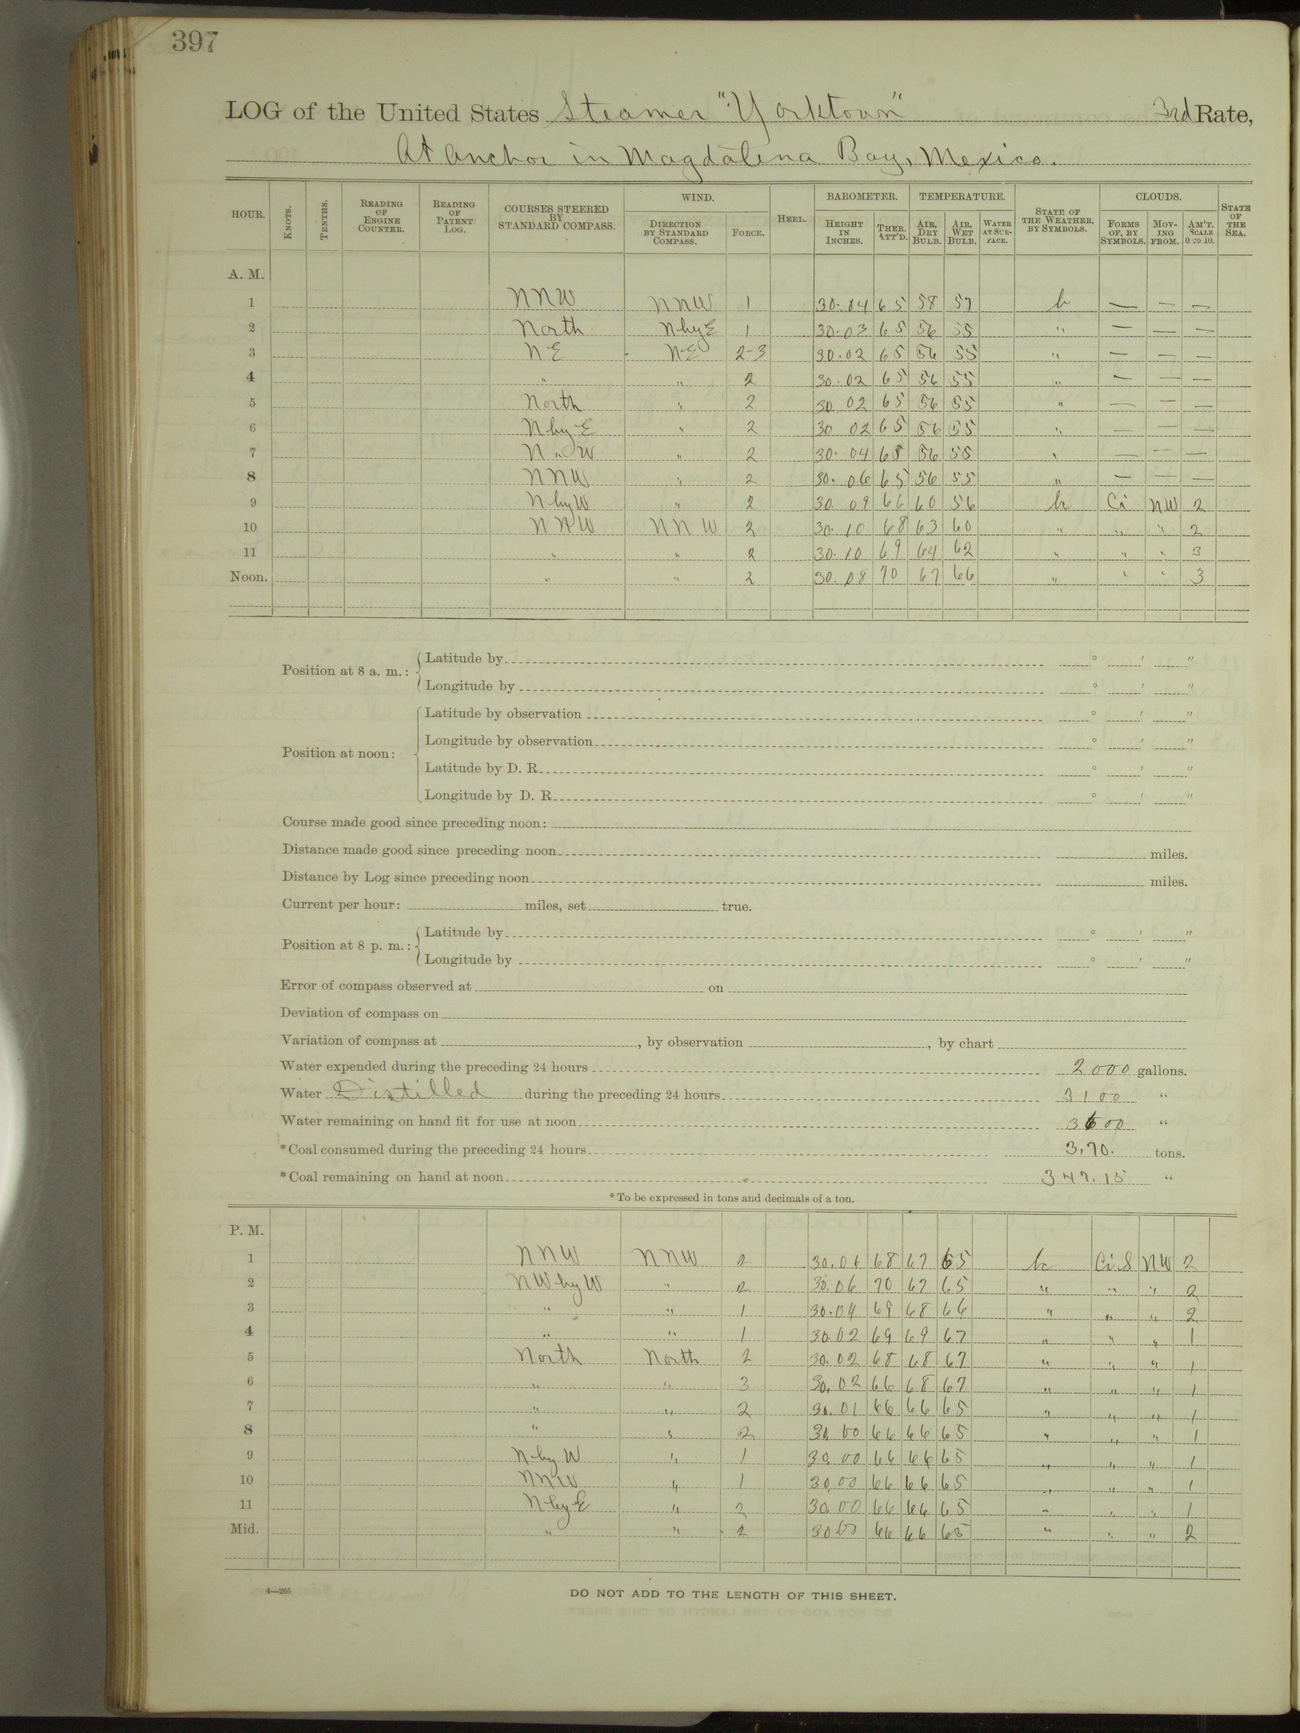 397
LOG of the United States Steamer "Yorktown" 3rd Rate,
At anchor in Magdalena Bay, Mexico.
HOUR. KNOTS. TENTHS. READING OF ENGINE COUNTER. READING OF PATENT LOG. COURSES STEERED BY STANDARD COMPASS. WIND. DIRECTION BY STANDARD COMPASS. FORCE. HEEL. BAROMETER. HEIGHT IN INCHES. THER. ATT'D. TEMPERATURE. AIR, DRY BULB. AIR, WET BULB. WATER AT SURFACE. STATE OF THE WEATHER, BY SYMBOLS. CLOUDS. FORMS OF, BY SYMBOLS. MOVING FROM. AM'T, SCALE 0 TO 10. STATE OF THE SEA.
A. M.
1 NNW NNW 1 30.04 65 58 57 b — — —
2 North N by E 1 30.03 65 56 55 " — — —
3 NE NE 2-3 30.02 65 56 55 " — — —
4 " " 2 30.02 65 56 55 " — — —
5 North " 2 30 02 65 56 55 " — — —
6 N by E " 2 30 02 65 56 55 " — — —
7 N " W " 2 30.04 65 56 55 " — — —
8 NNW " 2 30.06 65 56 55 " — — —
9 N by W " 2 30 09 66 60 56 bc Ci NW 2
10 NNW NNW 2 30.10 68 63 60 " " " 2
11 " " 2 30.10 69 64 62 " " " 3
Noon. " " 2 30.08 70 67 66 " " " 3
Position at 8 a. m.: Latitude by ° ' "
Longitude by ° ' "
Position at noon: Latitude by observation ° ' "
Longitude by observation ° ' "
Latitude by D. R. ° ' "
Longitude by D. R. ° ' "
Course made good since preceding noon:
Distance made good since preceding noon miles.
Distance by Log since preceding noon miles.
Current per hour: miles, set true.
Position at 8 p. m.: Latitude by ° ' "
Longitude by ° ' "
Error of compass observed at on
Deviation of compass on
Variation of compass at , by observation , by chart
Water expended during the preceding 24 hours 2000 gallons.
Water Distilled during the preceding 24 hours 3100 "
Water remaining on hand fit for use at noon 3600 "
*Coal consumed during the preceding 24 hours 3.70. tons.
*Coal remaining on hand at noon 347.15 "
*To be expressed in tons and decimals of a ton.
P. M.
1 NNW NNW 2 30.06 68 67 65 bc Ci.S NW 2
2 NW by W " 2 30.06 70 67 65 " " " 2
3 " " 1 30.04 69 68 66 " " " 2
4 " " 1 30.02 69 69 67 " " " 1
5 North North 2 30.02 68 68 67 " " " 1
6 " " 3 30.02 66 68 67 " " " 1
7 " " 2 30.01 66 66 65 " " " 1
8 " " 2 30.00 66 66 65 " " " 1
9 N by W " 1 30.00 66 66 65 " " " 1
10 NNW " 1 30.00 66 66 65 " " " 1
11 N by E " 2 30.00 66 66 65 " " " 1
Mid. " " 2 30 00 66 66 65 " " " 2
4—265
DO NOT ADD TO THE LENGTH OF THIS SHEET.